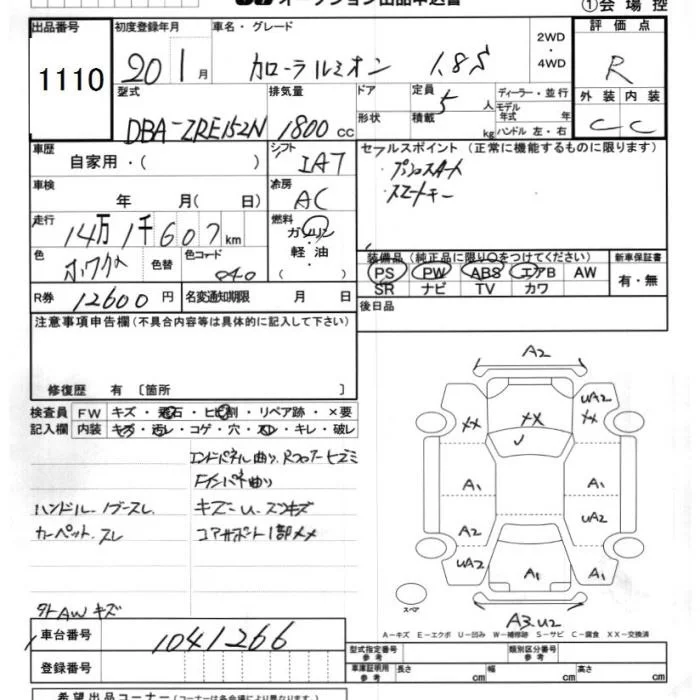 オークション出品申込書
①会場控
出品番号 初度登録年月 車名・グレード 2WD・4WD 評価点
1110 20 1月 カローラルミオン 1.8S R
型式 排気量 ドア 定員 ディーラー・並行 外装 内装
DBA-ZRE152N 1800cc 5人 モデル年式 年
形状 積載 kg ハンドル 左・右 C C
車歴 シフト セールスポイント (正常に機能するものに限ります)
自家用・( ) IAT プッシュスタート
車検 冷房 スマートキー
年 月( 日) AC
走行 燃料
14万1千607km ガソリン・軽油・( )
色 色替 カラーコード 装備品 (純正品に限り○をつけてください) 新車保証書
040 PS PW ABS エアB AW 有・無
SR ナビ TV カワ
R券 12600円 名変通知期限 月 日 後日品
注意事項申告欄(不具合内容等は具体的に記入して下さい)
修復歴 有 〔箇所 〕
検査員 FW キズ・飛石・ヒビ割・リペア跡・×要
記入欄 内装 キズ・汚レ・コゲ・穴・スレ・キレ・破レ
エンドパネル曲り、Rフロアーヒズミ
Fインパネ曲り
ハンドル・ノブースレ キズ-U、スリキズ
カーペット、スレ コアサポート1部××
外AWキズ
A2
UA2
×× ×× ××
A1 A1
A2 UA2
UA2 A1 A1
スペア
A3.U2
A-キズ E-エクボ U-凹み W-補修跡 S-サビ C-腐食 XX-交換済
車台番号 1041266
登録番号
型式指定番号 参考 類別区分番号 参考
車庫証明用 参考 長さ cm 幅 cm 高さ cm
希望出品コーナー (コーナーは各会場により異なります。)